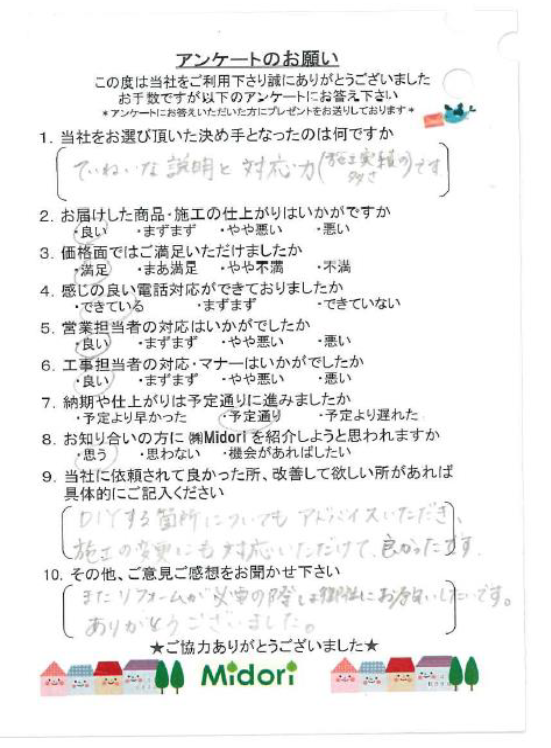 アンケートのお願い
この度は当社をご利用下さり誠にありがとうございました
お手数ですが以下のアンケートにお答え下さい
*アンケートにお答えいただいた方にプレゼントをお送りしております*
1. 当社をお選び頂いた決め手となったのは何ですか
ていねいな説明と対応力(施工実績の多さ)です
2. お届けした商品・施工の仕上がりはいかがですか
・良い ・まずまず ・やや悪い ・悪い
3. 価格面ではご満足いただけましたか
・満足 ・まあ満足 ・やや不満 ・不満
4. 感じの良い電話対応ができておりましたか
・できている ・まずまず ・できていない
5. 営業担当者の対応はいかがでしたか
・良い ・まずまず ・やや悪い ・悪い
6. 工事担当者の対応・マナーはいかがでしたか
・良い ・まずまず ・やや悪い ・悪い
7. 納期や仕上がりは予定通りに進みましたか
・予定より早かった ・予定通り ・予定より遅れた
8. お知り合いの方に ㈱Midori を紹介しようと思われますか
・思う ・思わない ・機会があればしたい
9. 当社に依頼されて良かった所、改善して欲しい所があれば
具体的にご記入ください
DIYする箇所についてもアドバイスいただき、
施工の変更にも対応いただけて、良かったです.
10. その他、ご意見ご感想をお聞かせ下さい
またリフォームが必要の際は御社にお願いしたいです。
ありがとうございました。
★ご協力ありがとうございました★
Midori